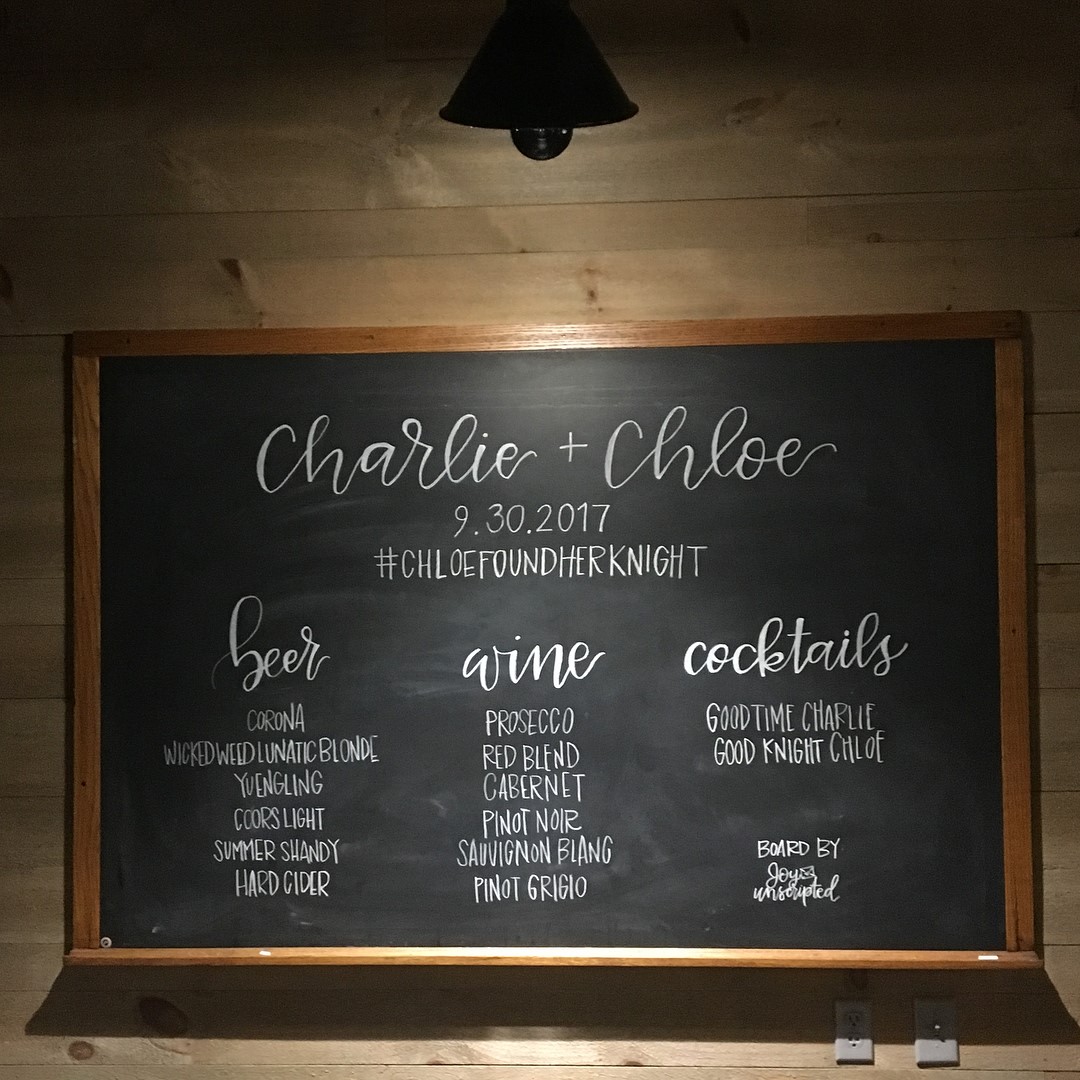 Charlie + Chloe
9.30.2017
#CHLOEFOUNDHERKNIGHT
beer
CORONA
WICKED WEED LUNATIC BLONDE
YUENGLING
COORS LIGHT
SUMMER SHANDY
HARD CIDER
wine
PROSECCO
RED BLEND
CABERNET
PINOT NOIR
SAUVIGNON BLANC
PINOT GRIGIO
cocktails
GOOD TIME CHARLIE
GOOD KNIGHT CHLOE
BOARD BY
Joy
unscripted